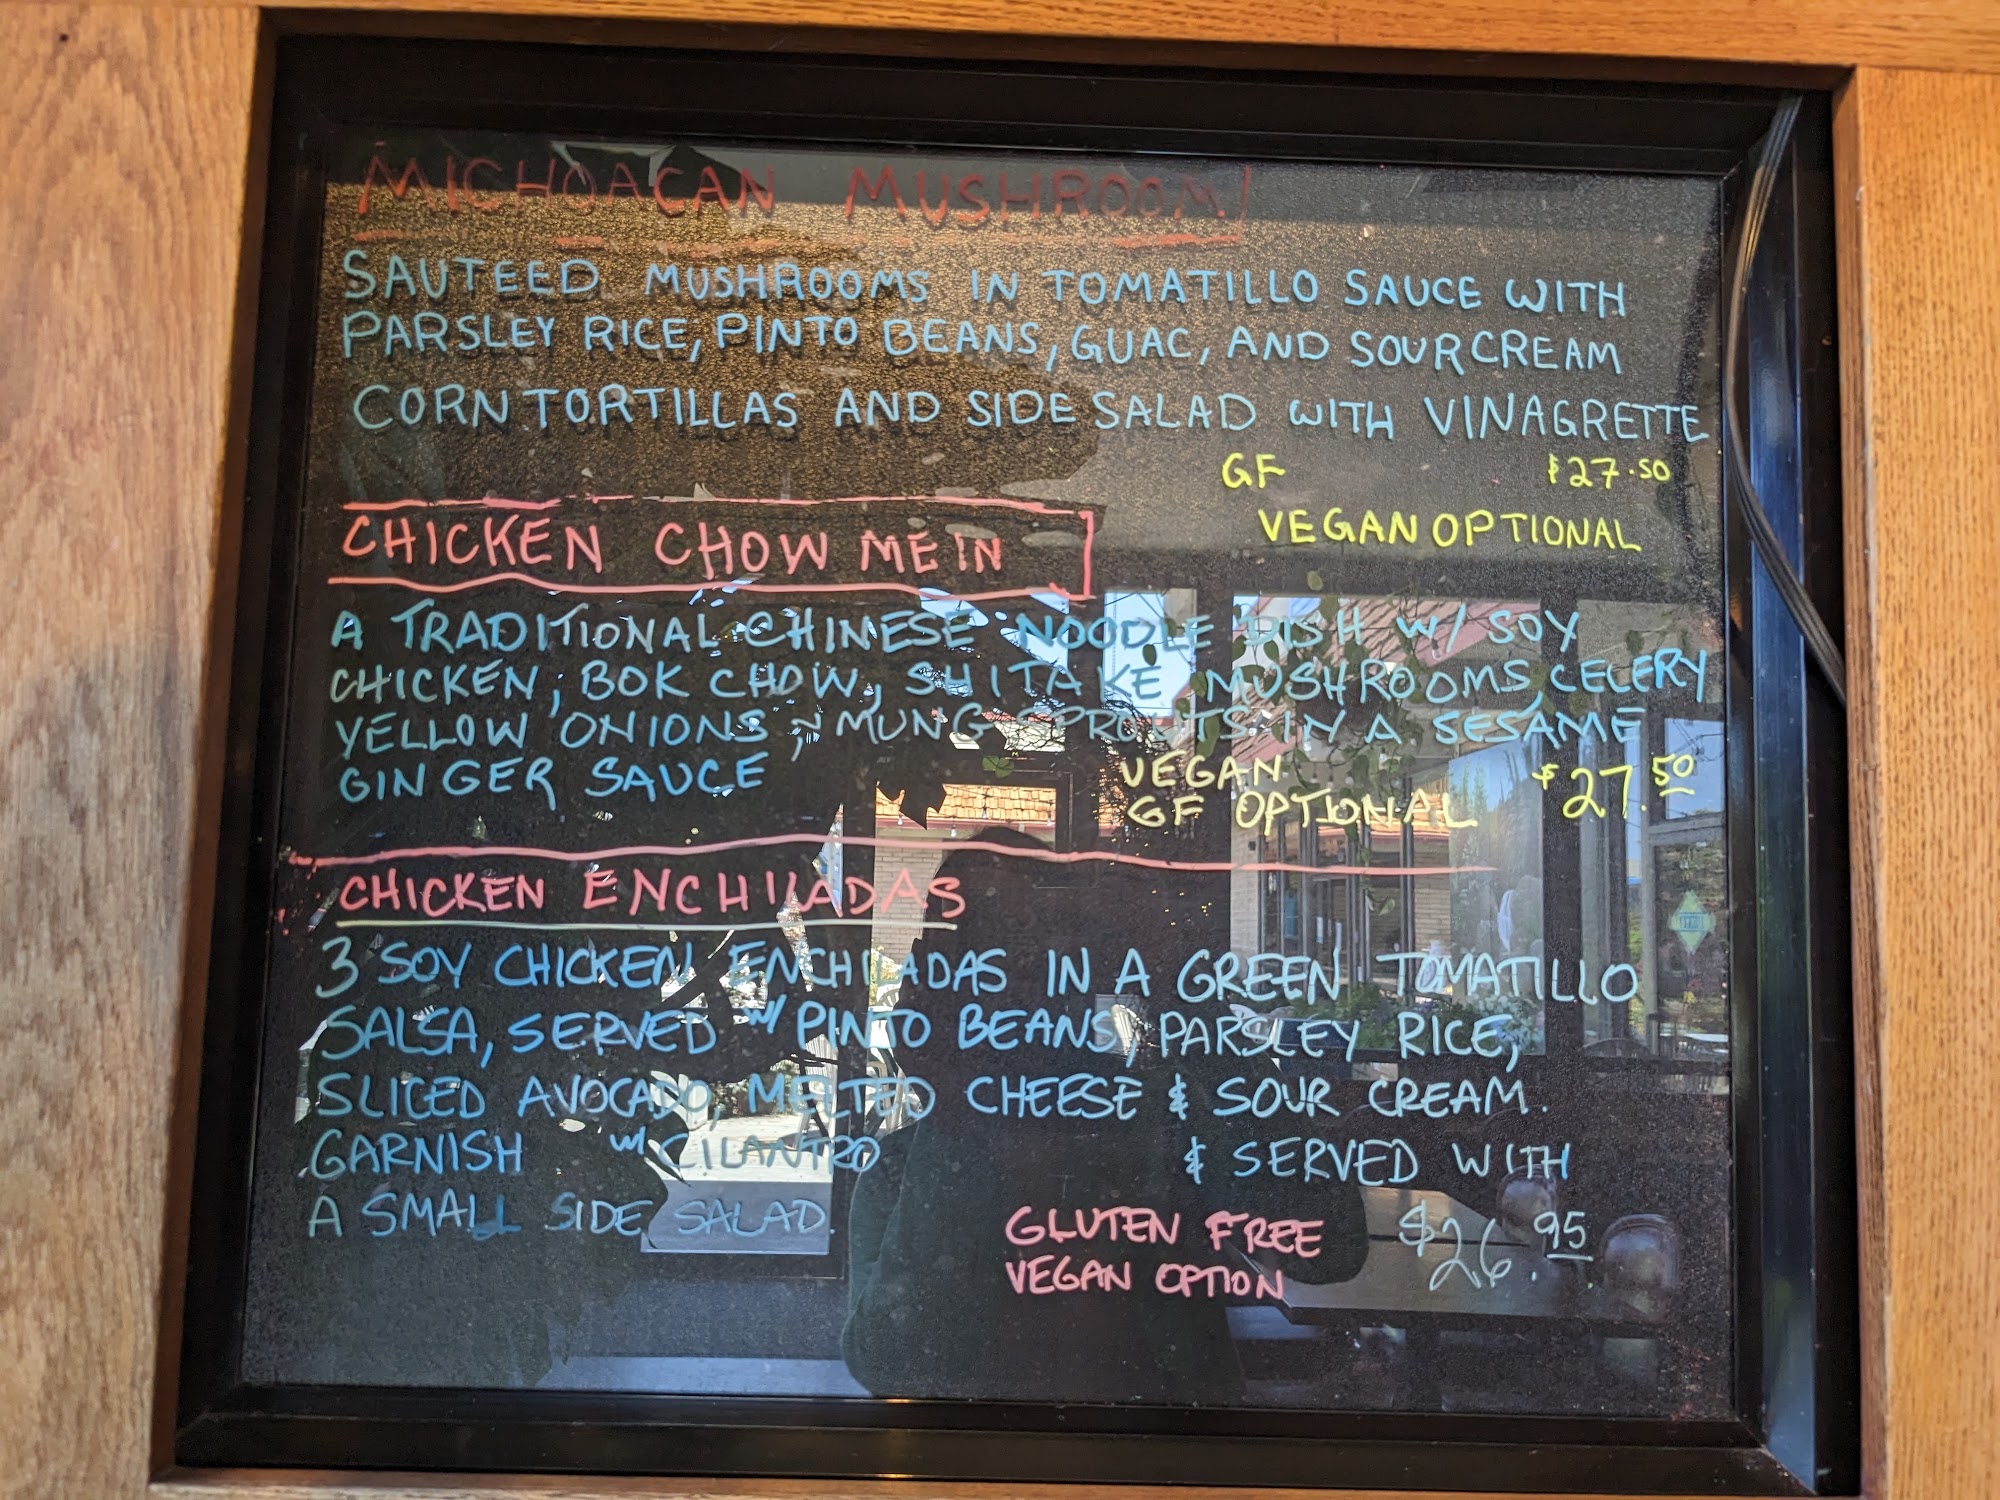 MICHOACAN MUSHROOM
SAUTEED MUSHROOMS IN TOMATILLO SAUCE WITH
PARSLEY RICE, PINTO BEANS, GUAC, AND SOUR CREAM
CORN TORTILLAS AND SIDE SALAD WITH VINAGRETTE
GF $27.50
VEGAN OPTIONAL
CHICKEN CHOW MEIN
A TRADITIONAL CHINESE NOODLE DISH W/ SOY
CHICKEN, BOK CHOW, SHITAKE MUSHROOMS, CELERY
YELLOW ONIONS, & MUNG SPROUTS IN A SESAME
GINGER SAUCE
VEGAN
GF OPTIONAL $27.50
CHICKEN ENCHILADAS
3 SOY CHICKEN ENCHILADAS IN A GREEN TOMATILLO
SALSA, SERVED W/ PINTO BEANS, PARSLEY RICE,
SLICED AVOCADO, MELTED CHEESE & SOUR CREAM.
GARNISH W/ CILANTRO & SERVED WITH
A SMALL SIDE SALAD.
GLUTEN FREE $26.95
VEGAN OPTION